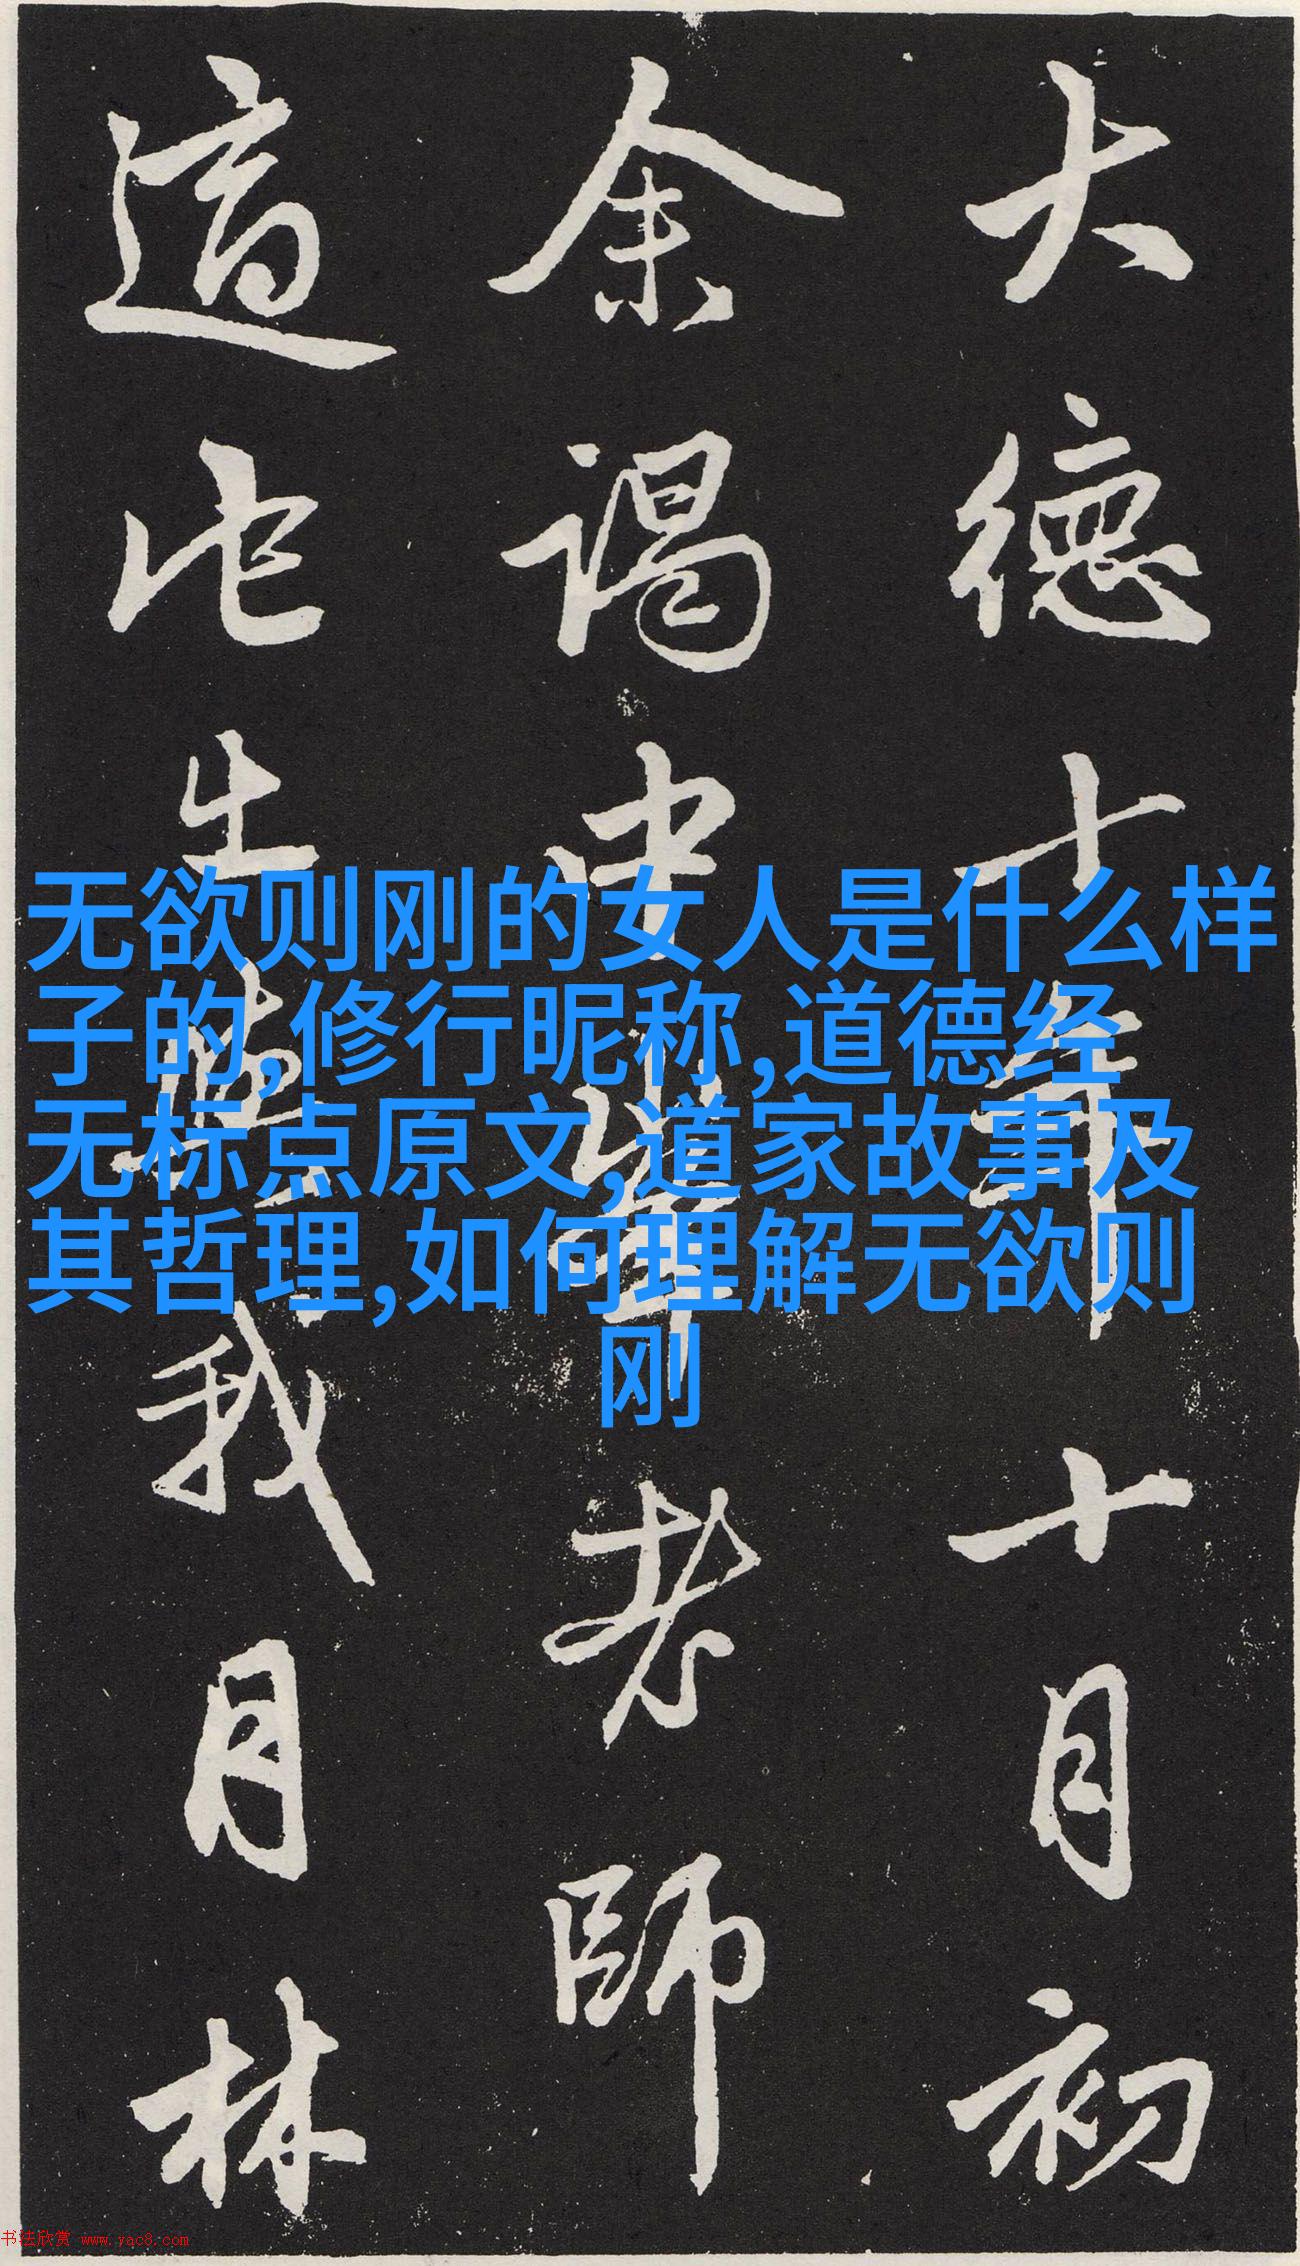 大德十年十月初
余謁中峯老師
適此我月林
无欲则刚的女人是什么样
子的,修行昵称,道德经
无标点原文,道家故事及
其哲理,如何理解无欲则
刚
书法欣赏 www.yac8.com